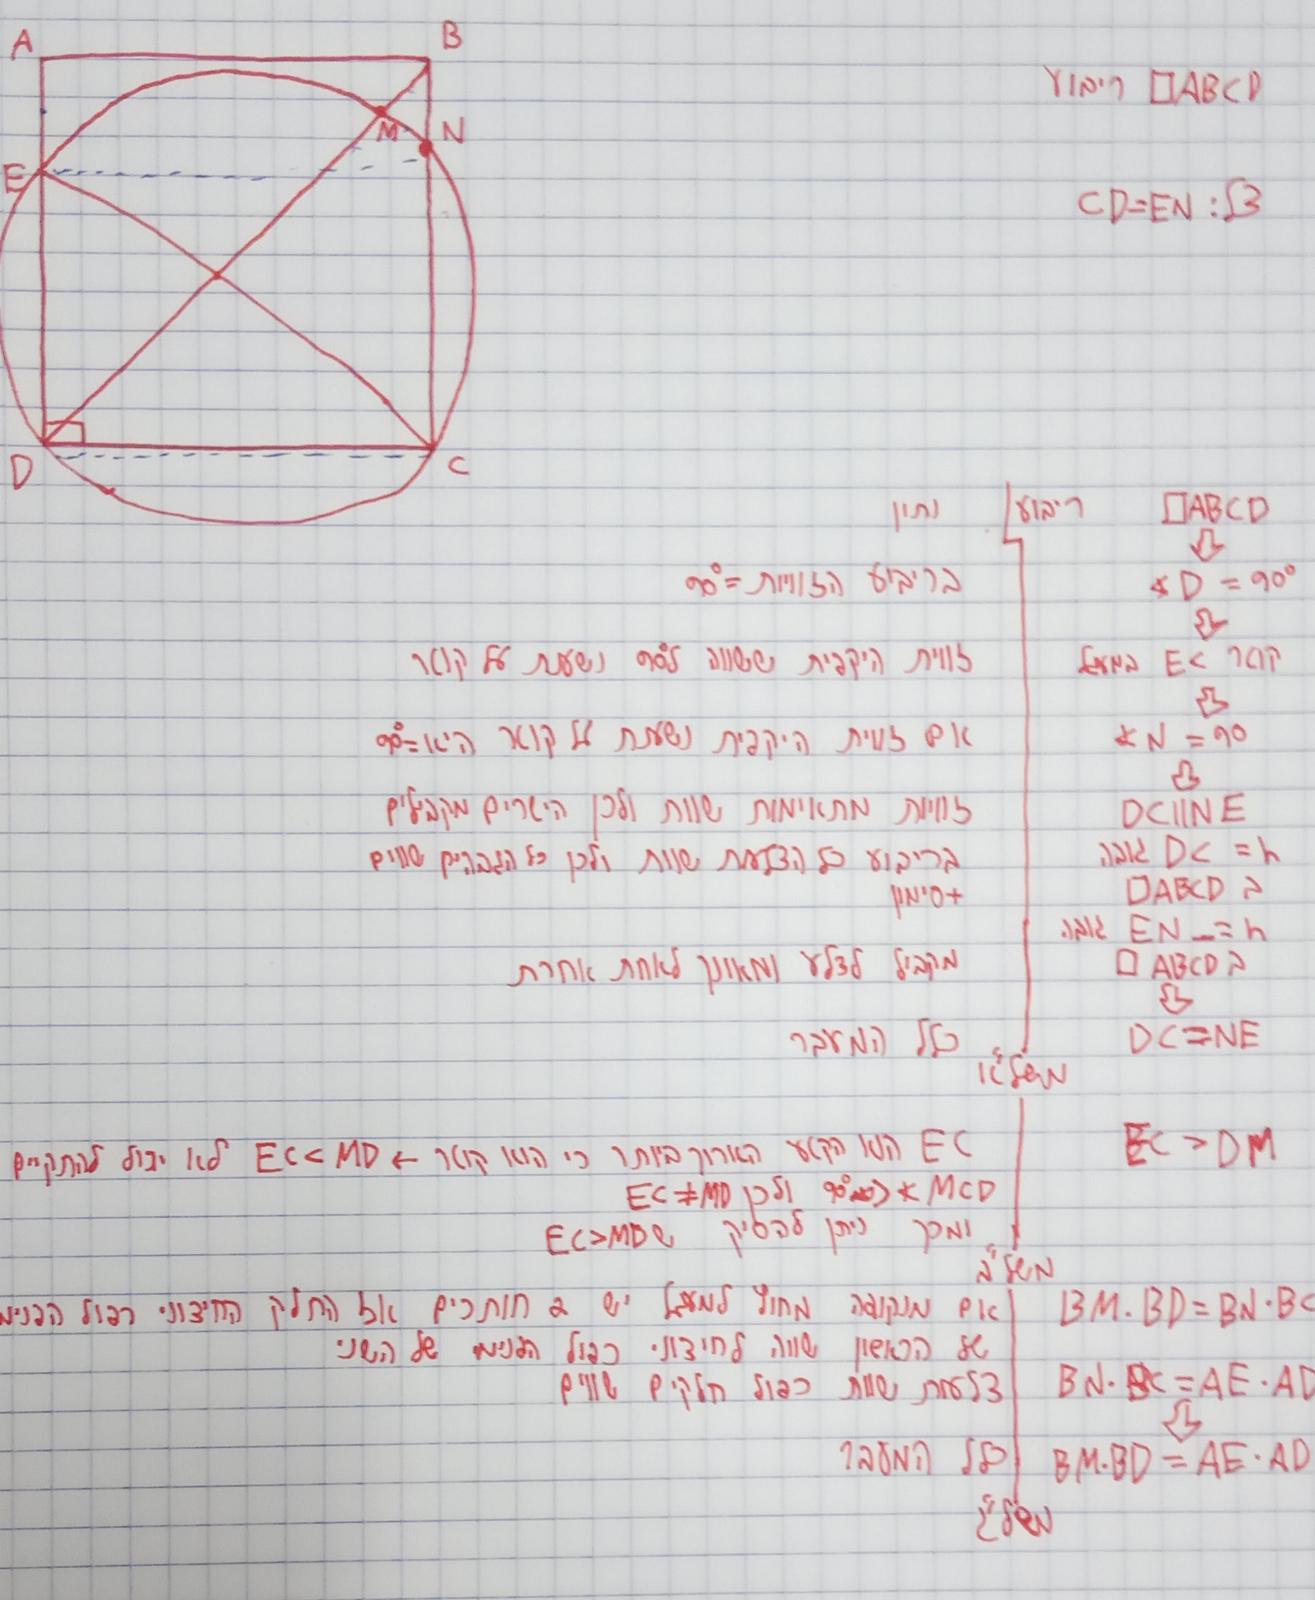 A
B
M
N
E
D
C
ABCD□ ריבוע
צל: CD=EN
□ABCD ריבוע נתון
⇓
∢D = 90° בריבוע הזוויות =90°
⇓
EC קוטר במעגל זווית היקפית ששווה ל90° נשענת על קוטר
⇓
∢N = 90 אם זווית היקפית נשענת על קוטר היא=90°
⇓
DC||NE זוויות מתאימות שוות ולכן הישרים מקבילים
DC = h גובה בריבוע כל הצלעות שוות ולכן כל הגבהים שווים
ב □ABCD +סימון
EN = h גובה
ב □ABCD מקביל לצלע ומאונך לאחת אחרת
⇓
DC=NE כלל המעבר
משל"א
EC > DM EC הוא הקטע הארוך ביותר כי הוא קוטר ← EC<MD לא יכול להתקיים
∢MCD 90° ולכן EC≠MD
ומכך ניתן להסיק שEC>MD
משל"ב
BM·BD=BN·BC אם מנקודה מחוץ למעגל יש 2 חותכים אז החלק החיצוני כפול הפנימי
של הראשון שווה לחיצוני כפול הפנימי של השני
BN·BC=AE·AD צלעות שוות כפול חלקים שווים
⇓
BM·BD=AE·AD כלל המעבר
משל"ג